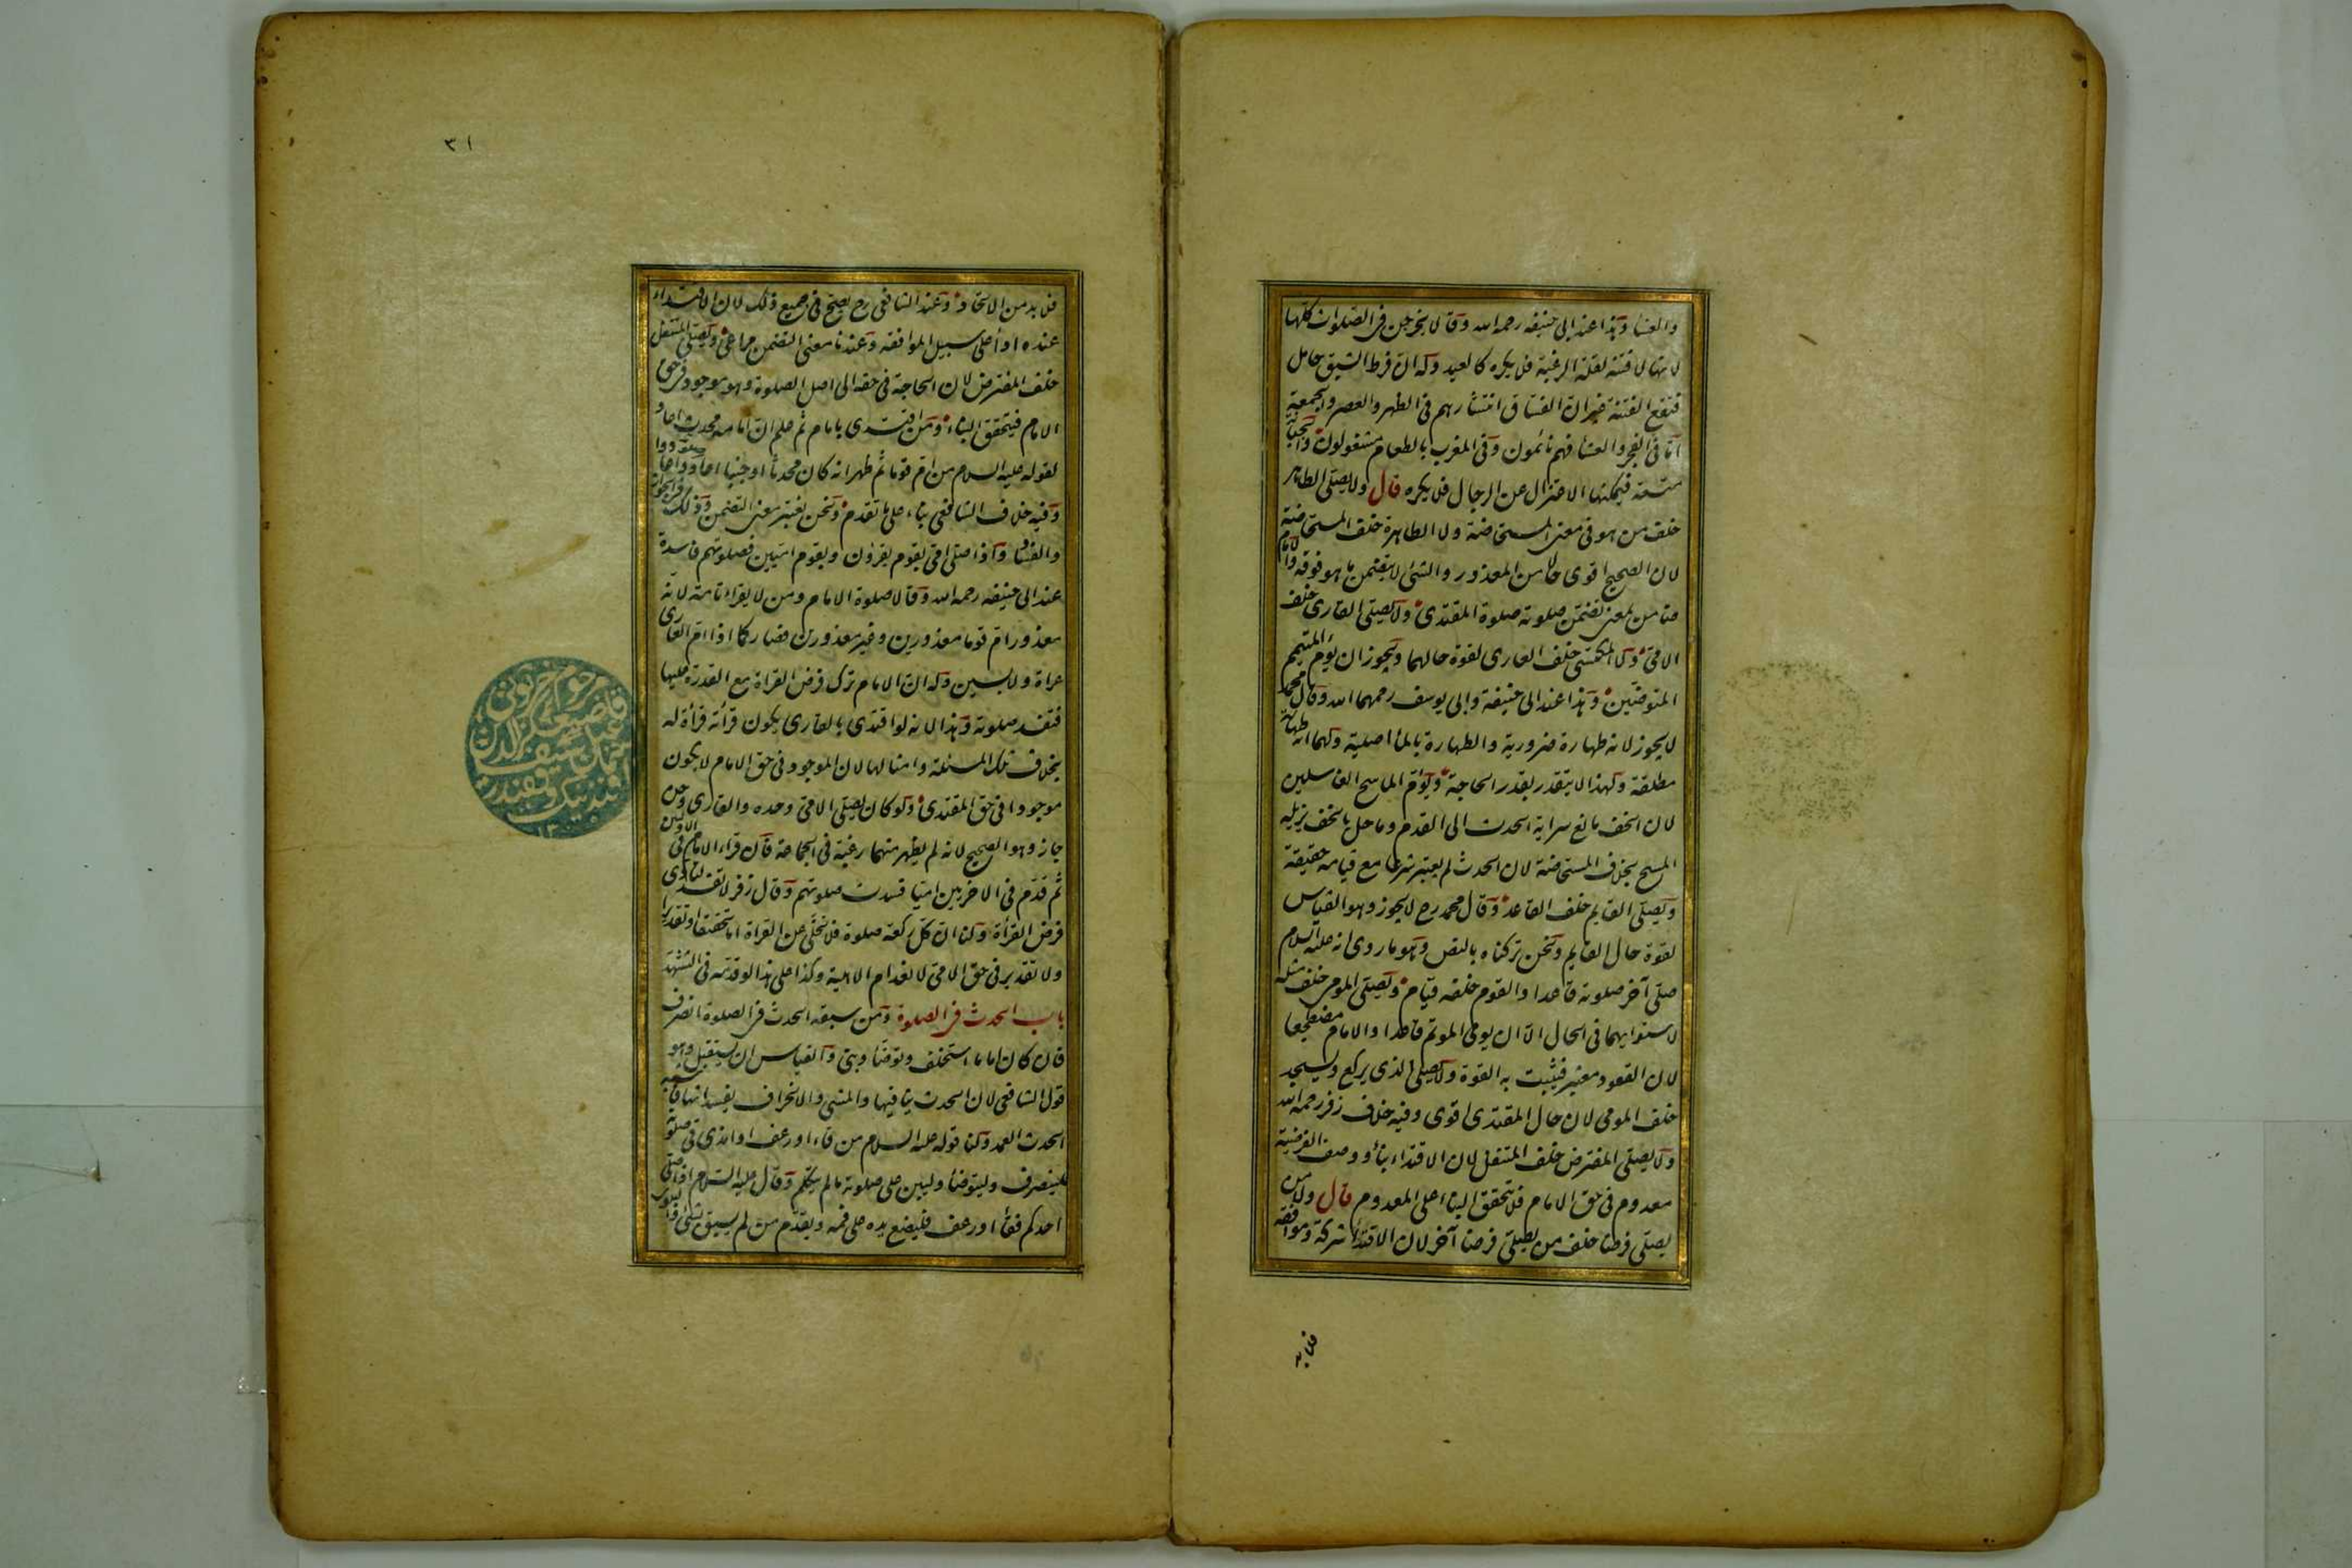 والعشا وهذا عند ابى حنيفه رحمه الله وقالا يخرجن فى الصلوات كلها
لانها لا فتنه لقلة الرغبة فلا يكره كالعيد وله ان فرط الشبق حامل
فتقع الفتنة غيران الفساق انتشارهم فى الظهر والعصر والجمعة
اما فى الفجر والعشا فهم نائمون وفى المغرب بالطعام مشغولون والجبانة
متسعة فيمكنها الاعتزال عن الرجال فلا يكره قال ولا يصلى الطاهر
خلف من هو فى معنى المستحاضة ولا الطاهرة خلف المستحاضة
لان الصحيح اقوى حالا من المعذور والشئ لا يتضمن ما هو فوقه والامام
ضامن بمعنى تضمن صلوته صلوة المقتدى ولا يصلى القارى خلف
الامى ولا المكتسى خلف العارى لقوة حالهما ويجوز ان يؤم المتيمم
المتوضئين وهذا عند ابى حنيفة وابى يوسف رحمهما الله وقال محمد
لا يجوز لانه طهارة ضرورية والطهارة بالماء اصلية ولهما انه طهارة
مطلقة ولهذا لا يتقدر بقدر الحاجة ويؤم الماسح الغاسلين
لان الخف مانع سراية الحدث الى القدم وما حل بالخف يزيله
المسح بخلاف المستحاضة لان الحدث لم يعتبر شرعا مع قيامه حقيقة
ويصلى القايم خلف القاعد وقال محمد رح لا يجوز وهو القياس
لقوة حال القايم ونحن تركناه بالنص وهو ما روى انه عليه السلام
صلى آخر صلوته قاعدا والقوم خلفه قيام ويصلى المومى خلف مثله
لاستوايهما فى الحال الا ان يومى الموتم قاعدا والامام مضطجعا
لان القعود معتبر فيثبت به القوة ولا يصلى الذى يركع ويسجد
خلف المومى لان حال المقتدى اقوى وفيه خلاف زفر رحمه الله
ولا يصلى المفترض خلف المتنفل لان الاقتداء بناء ووصف الفرضية
معدوم فى حق الامام فلا يتحقق البناء على المعدوم قال ولا من
يصلى فرضا خلف من يصلى فرضا آخر لان الاقتداء شركة وموافقة
فلا بد
٣١
فلا بد من الاتحاد وعند الشافعى رح يصح فى جميع ذلك لان الاقتداء
عنده اداء على سبيل الموافقه وعندنا معنى التضمن مراعى ويصلى المتنفل
خلف المفترض لان الحاجة فى حقه الى اصل الصلوة وهو موجود فى حق
الامام فيتحقق البناء ومن اقتدى بامام ثم علم ان امامه محدث اعاد
لقوله عليه السلام من ام قوما ثم ظهر انه كان محدثا او جنبا اعاد صلوته واعادوا
وفيه خلاف الشافعى بناء على ما تقدم ونحن نعتبر معنى التضمن وذلك فى الجواز
والفساد واذا صلى امى بقوم يقرؤن وبقوم اميين فصلوتهم فاسدة
عند ابى حنيفه رحمه الله وقالا صلوة الامام ومن لا يقراء تامة لانه
معذور ام قوما معذورين وغير معذورين فصار كما اذا ام العارى
عراة ولابسين وله ان الامام ترك فرض القراة مع القدرة عليها
فتفسد صلوته وهذا لانه لو اقتدى بالقارى يكون قرأته قرأة له
بخلاف تلك المسئلة وامثالها لان الموجود فى حق الامام لا يكون
موجودا فى حق المقتدى ولو كان يصلى الامى وحده والقارى وحده
جاز وهو الصحيح لانه لم يظهر منهما رغبة فى الجماعة فان قراء الامام فى الاوليين
ثم قدم فى الاخريين اميا فسدت صلوتهم وقال زفر لا تفسد لتادى
فرض القراة ولنا ان كل ركعة صلوة فلا تخلى عن القراة اما تحقيقا او تقديرا
ولا تقدير فى حق الامى لانعدام الاهلية وكذا على هذا لو قدمه فى التشهد
باب الحدث فى الصلوة ومن سبقه الحدث فى الصلوة انصرف
فان كان اماما استخلف وتوضأ وبنى والقياس ان يستقبل وهو
قول الشافعى لان الحدث ينافيها والمشى والانحراف يفسدانها فاشبه
الحدث العمد ولنا قوله عليه السلام من قاء او رعف او امذى فى صلوته
فلينصرف وليتوضأ وليبن على صلوته ما لم يتكلم وقال عليه السلام اذا صلى
احدكم فقاء او رعف فليضع يده على فمه ويقدم من لم يسبق بشئ